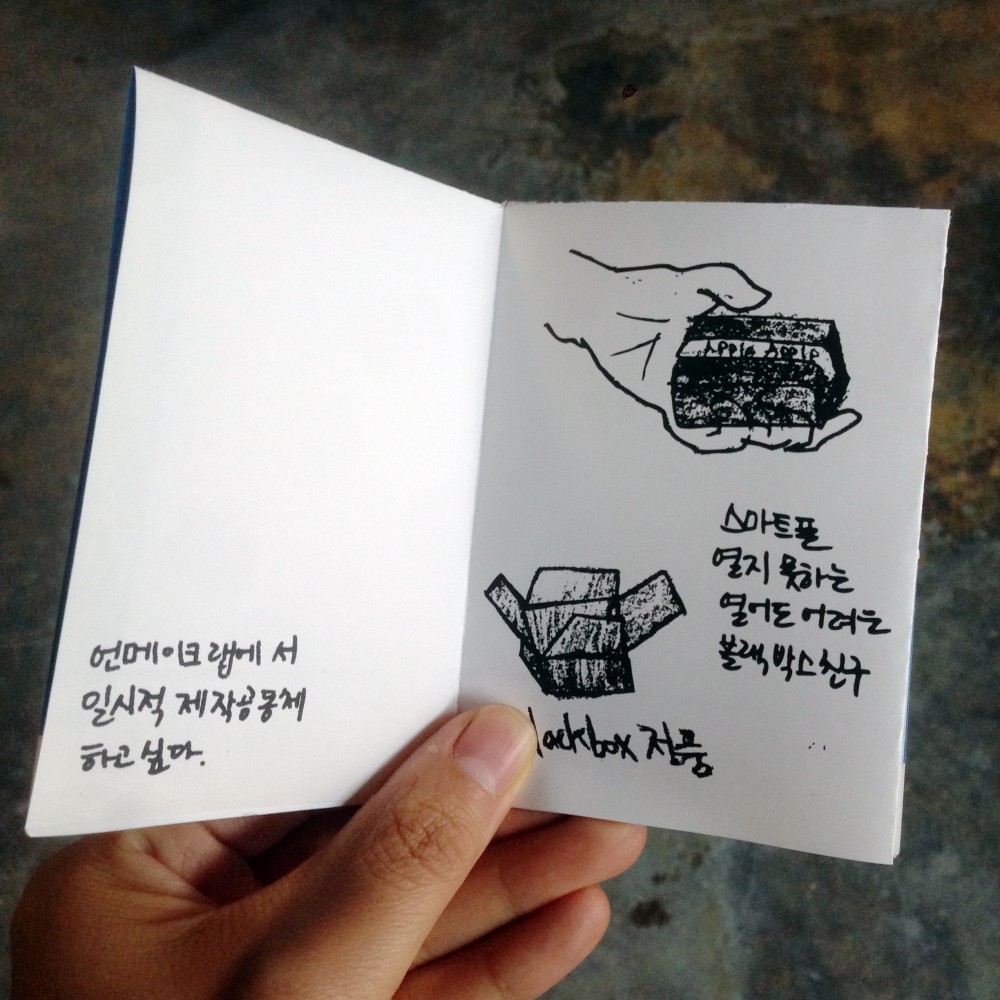 언메이크랩에서
일시적 제작공동체
하고싶다.
Apple Apple
스마트폰
열지 못하는
열어도 어려운
블랙박스친구
lackbox 제품